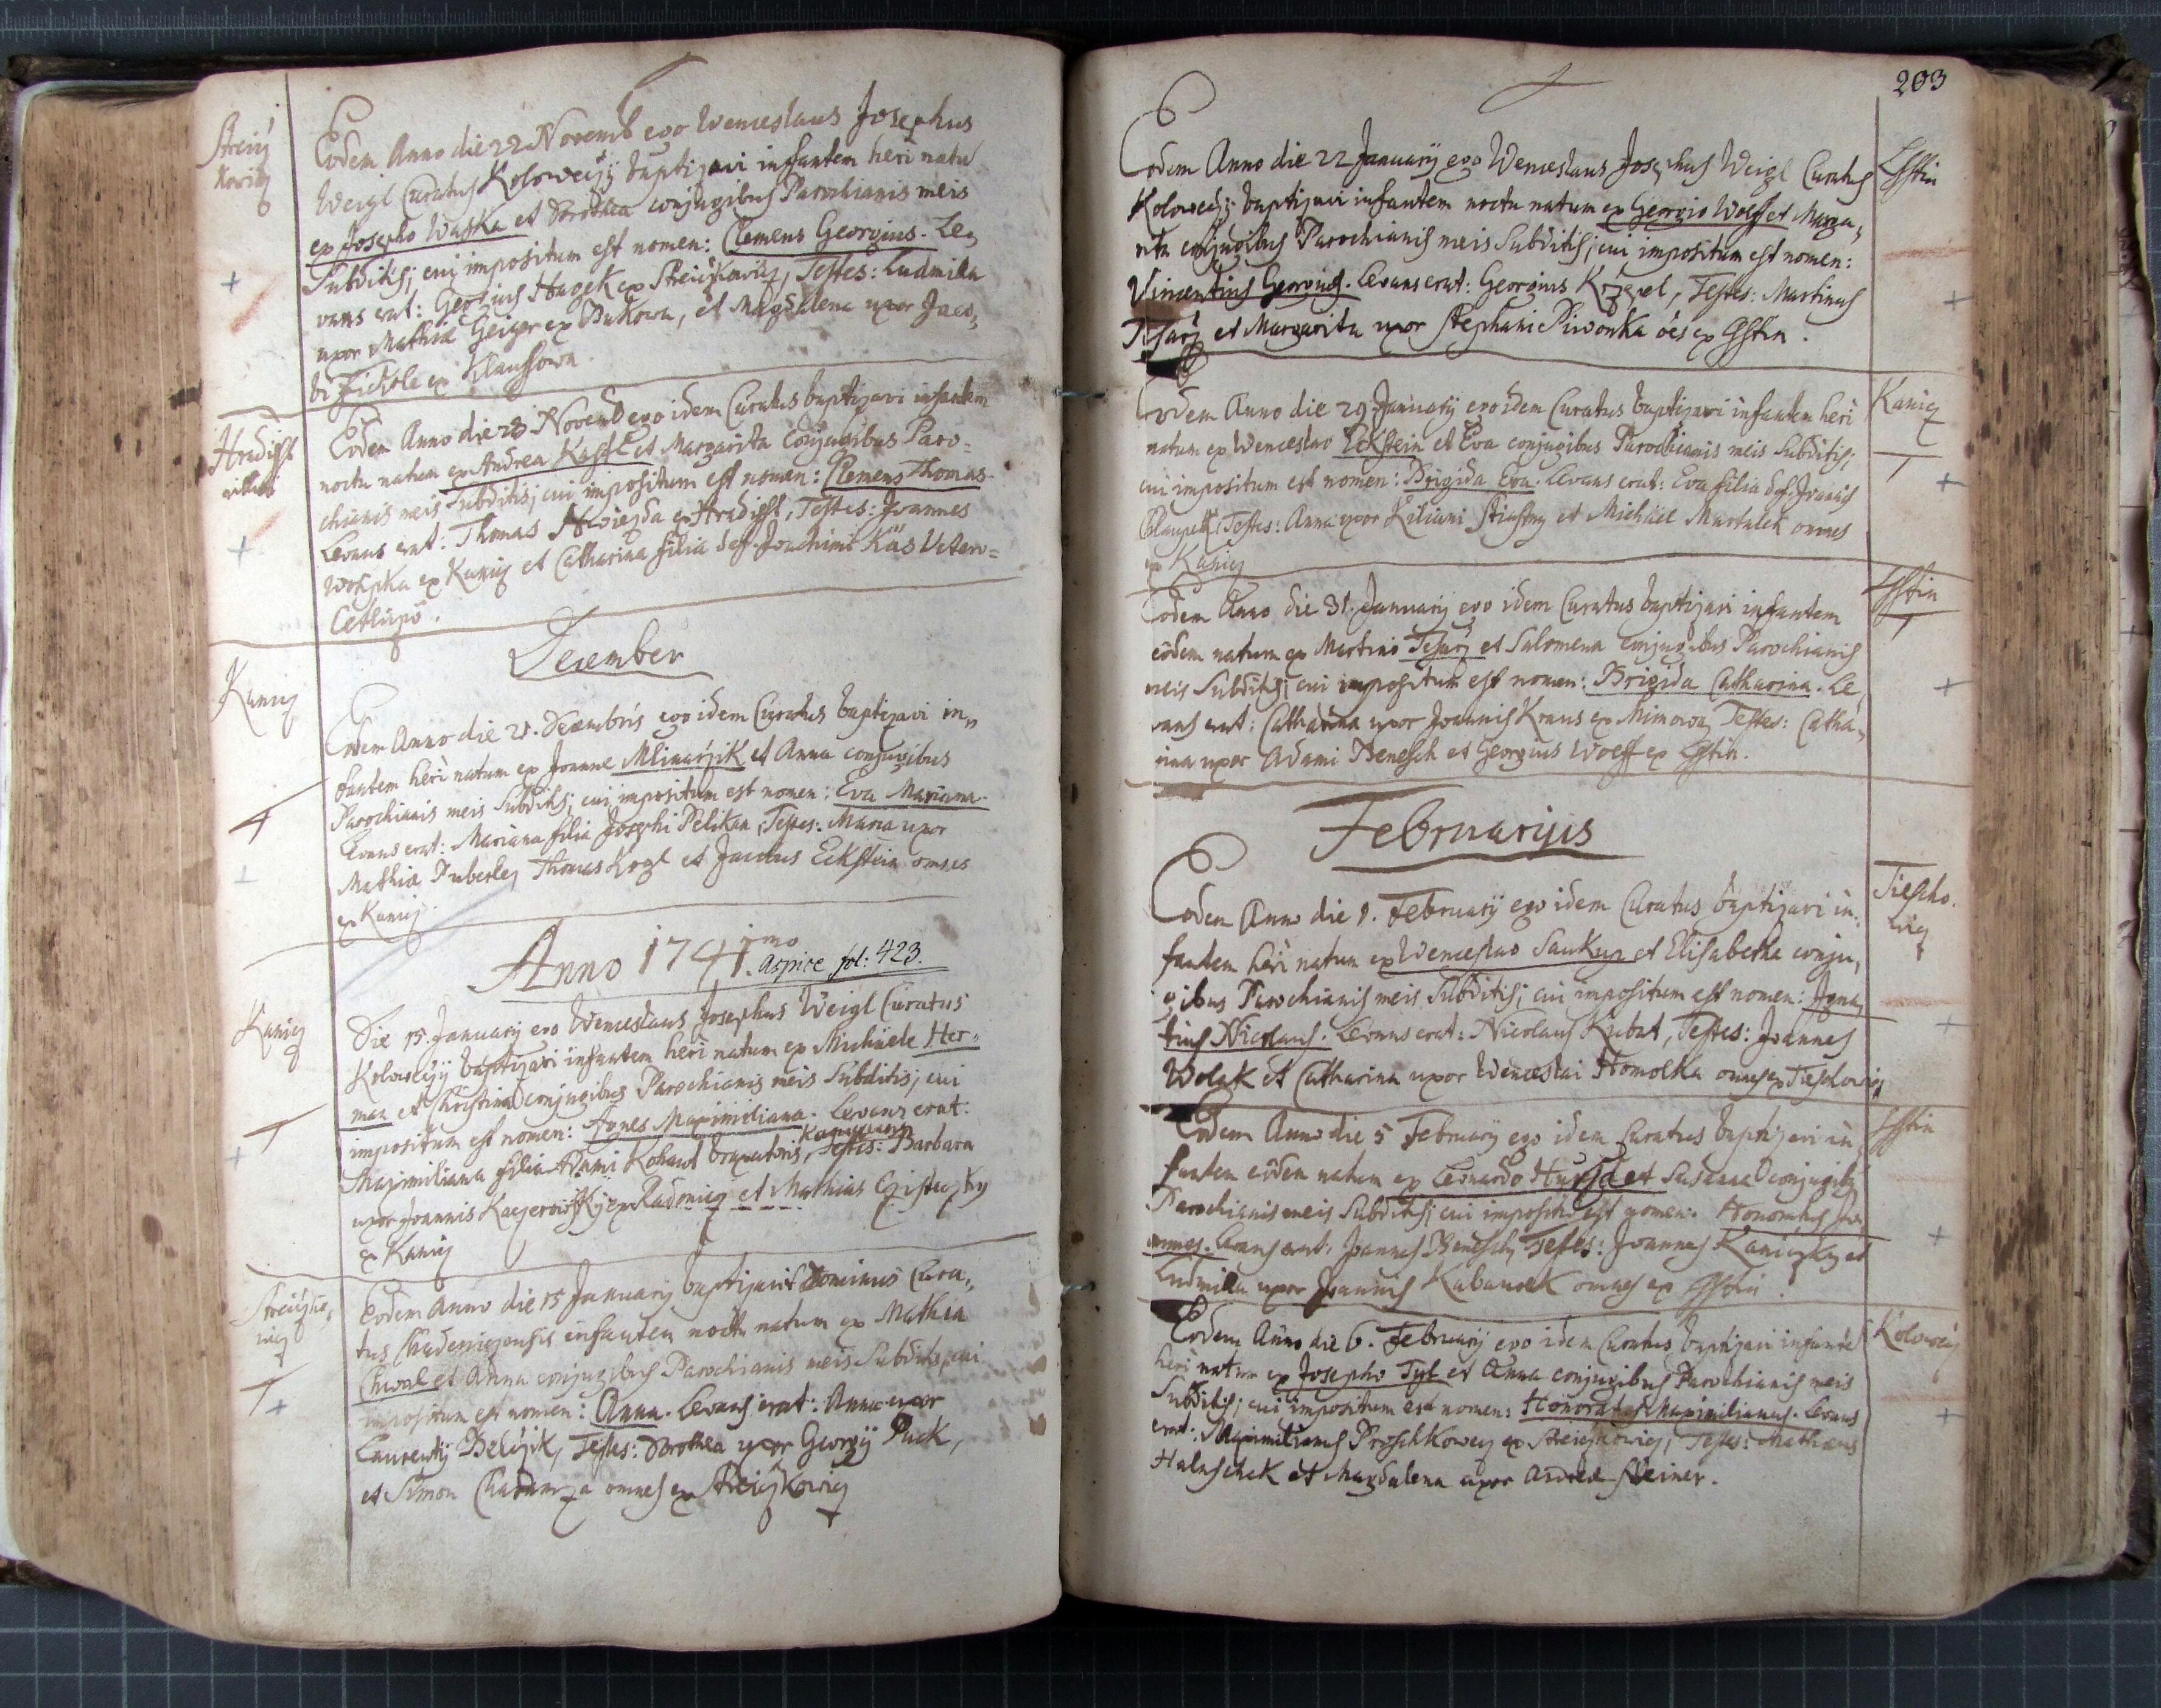 Eodem Anno die 22 Novemb ego Wenceslaus Josephus
Weigl Curatus Koloweczÿ baptizavi infantem heri natu
ex Josepho Waska et Dorothea conjugibus Parochianis meis
Subditis; cui impositum est nomen: Clemens Georgius. Le,,
vans erat: Georgius Hagek ex Streiczkowicz, Testes: Ludmila
uxor Mathiæ Geiger ex Bukowa, et Magdalena uxor Jaco,,
bi Zickle ex
Hradischt
Eodem Anno die 23 Novemb ego idem Curatus baptizavi infantem
noctu natum ex Andrea Kastl et Margarita Conjugibus Paro=
chianis meis Subditis; cui impositum est nomen: Clemens Thomas.
Levans erat: Thomas Hwiezda ex Hradischt, Testes: Joannes
ex Kanicz et Catharina filia def. Joachimi Käs Vetero=
December
Kanicz
Eodem Anno die 21. Decembris ego idem Curatus baptizavi in,,
fantem heri natum ex Joanne Mlinarzik et Anna conjugibus
Parochianis meis Subditis; cui impositum est nomen: Eva Mariana.
Levans erat: Mariana filia Josephi Pelikan, Testes: Maria uxor
Mathiæ Puberle, Thomas Kogl et Jacobus Eckstein omnes
ex Kanicz.
Anno 1741mo. Aspice fol: 423.
Kanicz
Die 15. Januarÿ ego Wenceslaus Josephus Weigl Curatus
Koloweczÿ baptizavi infantem heri natum ex Michaele Her=
man et Christina conjugibus Parochianis meis Subditis; cui
impositum est nomen: Agnes Maximiliana. Levans erat:
Maximiliana filia Adami Kohaut braxatoris, Testes: Barbara
uxor Joannis ex Radonicz et Mathias
ex Kanicz
Eodem Anno die 15 Januarÿ baptizavit Dominus Cura,,
tus Chudenicensis infantem noctu natum ex Mathia
Chwal et Anna conjugibus Parochianis meis Subditis, cui
impositum est nomen: Anna. Levans erat: Anna uxor
Laurentÿ Testes: Dorothea uxor Georgÿ Puck,
et Simon omnes ex Streiczkowicz
203
Eodem Anno die 22 Januarÿ ego Wenceslaus Josephus Weigl Curatus
Koloweczÿ baptizavi infantem noctu natum ex Georgio Wolff et Marga,,
rita conjugibus Parochianis meis Subditis; cui impositum est nomen:
Vincentius Georgius. Levans erat: Georgius Krzepel, Testes: Martinus
Tesarz et Margarita uxor Stephani Piwonka oes ex Lstin.
Lstin
Eodem Anno die 29 Januarÿ ego idem Curatus baptizavi infantem heri
natum ex Wenceslao Eckstein et Eva conjugibus Parochianis meis Subditis;
cui impositum est nomen: Brigida Eva. Levans erat: Eva filia def. Joannis
Testes: Anna uxor Kiliani Stiastny et Michael Martalek omnes
ex Kanicz
Kanicz
Eodem Anno die 31. Januarÿ ego idem Curatus baptizavi infantem
eodem natum ex Martino Tesarz et Salomena conjugibus Parochianis
meis Subditis; cui impositum est nomen: Brigida Catharina. Le
vans erat: Catharina uxor Joannis Kraus ex Mimowa, Testes: Catha,,
rina uxor Adami Benesch et Georgius Wolff ex Lstin.
Lstin
Februarijs
Eodem Anno die 1. Februarÿ ego idem Curatus baptizavi in,
fantem heri natum ex Wenceslao Saukup et Elisabetha conju,
gibus Parochianis meis Subditis; cui impositum est nomen: Igna,
tius Nicolaus. Levans erat: Nicolaus Kubat, Testes: Joannes
Wolak et Catharina uxor Wenceslai Homolka omnes ex Tieschowicz
Tiescho.
wicz
Eodem Anno die 5 Februarÿ ego idem Curatus baptizavi in
fantem eodem natum ex Leonardo et Susanna conjugibus
Parochianis meis Subditis; cui impositu est nomen: Honoratus Jo,
annes. Levans erat: Joannes Benesch, Testes: Joannes Kaniczky et
Ludmila uxor Joannis Kabaurek omnes ex Lstin.
Lstin
Eodem Anno die 6. Februarÿ ego idem Curatus baptizavi infante
heri natum ex Josepho Tyl et Anna conjugibus Parochianis meis
Subditis; cui impositum est nomen: Honoratus Maximilianus. Levans
erat: Maximilianus Proschkowey ex Streiczkowicz, Testes: Mathæus
Haluschek et Magdalena uxor Andreæ Steiner.
Kolowecz